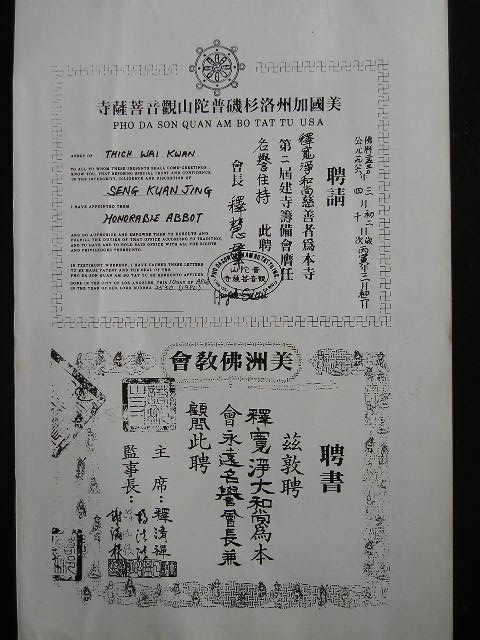 美國加州洛杉磯普陀山觀音菩薩寺
PHO DA SON QUAN AM BO TAT TU USA
ABBOT OF THICH WAI KWAN
TO ALL TO WHOM THESE PRESENTS SHALL COME—GREETINGS
KNOW YOU, THAT REPOSING SPECIAL TRUST AND CONFIDENCE
IN THE INTEGRITY, DILIGENCE AND DISCRETION OF
SENG KUAN JING
I HAVE APPOINTED THEM
HONORABLE ABBOT
AND DO AUTHORIZE AND EMPOWER THEM TO EXECUTE AND
FULFILL THE DUTIES OF THAT OFFICE ACCORDING TO TRADITION,
AND TO HAVE AND TO HOLD SAID OFFICE WITH ALL THE RIGHTS
AND PRIVILEGES THEREUNTO.
IN TESTIMONY WHEREOF, I HAVE CAUSED THESE LETTERS
TO BE MADE PATENT AND THE SEAL OF THE
PHO DA SON QUAN AM BO TAT TU BE HEREUNTO AFFIXED
DONE IN THE CITY OF LOS ANGELES THIS
IN THE YEAR OF OUR LORD BUDDHA 2530
聘請
釋寬淨和尚慈善者為本寺
第二屆建寺籌備會曆任
名譽住持 此聘
會長 釋慧
普陀山
觀音菩薩寺
美洲佛教會
聘書
茲敦聘
釋寬淨大和尚為本
會永遠名譽會長兼
顧問此聘
主席：釋清禪
監事長：